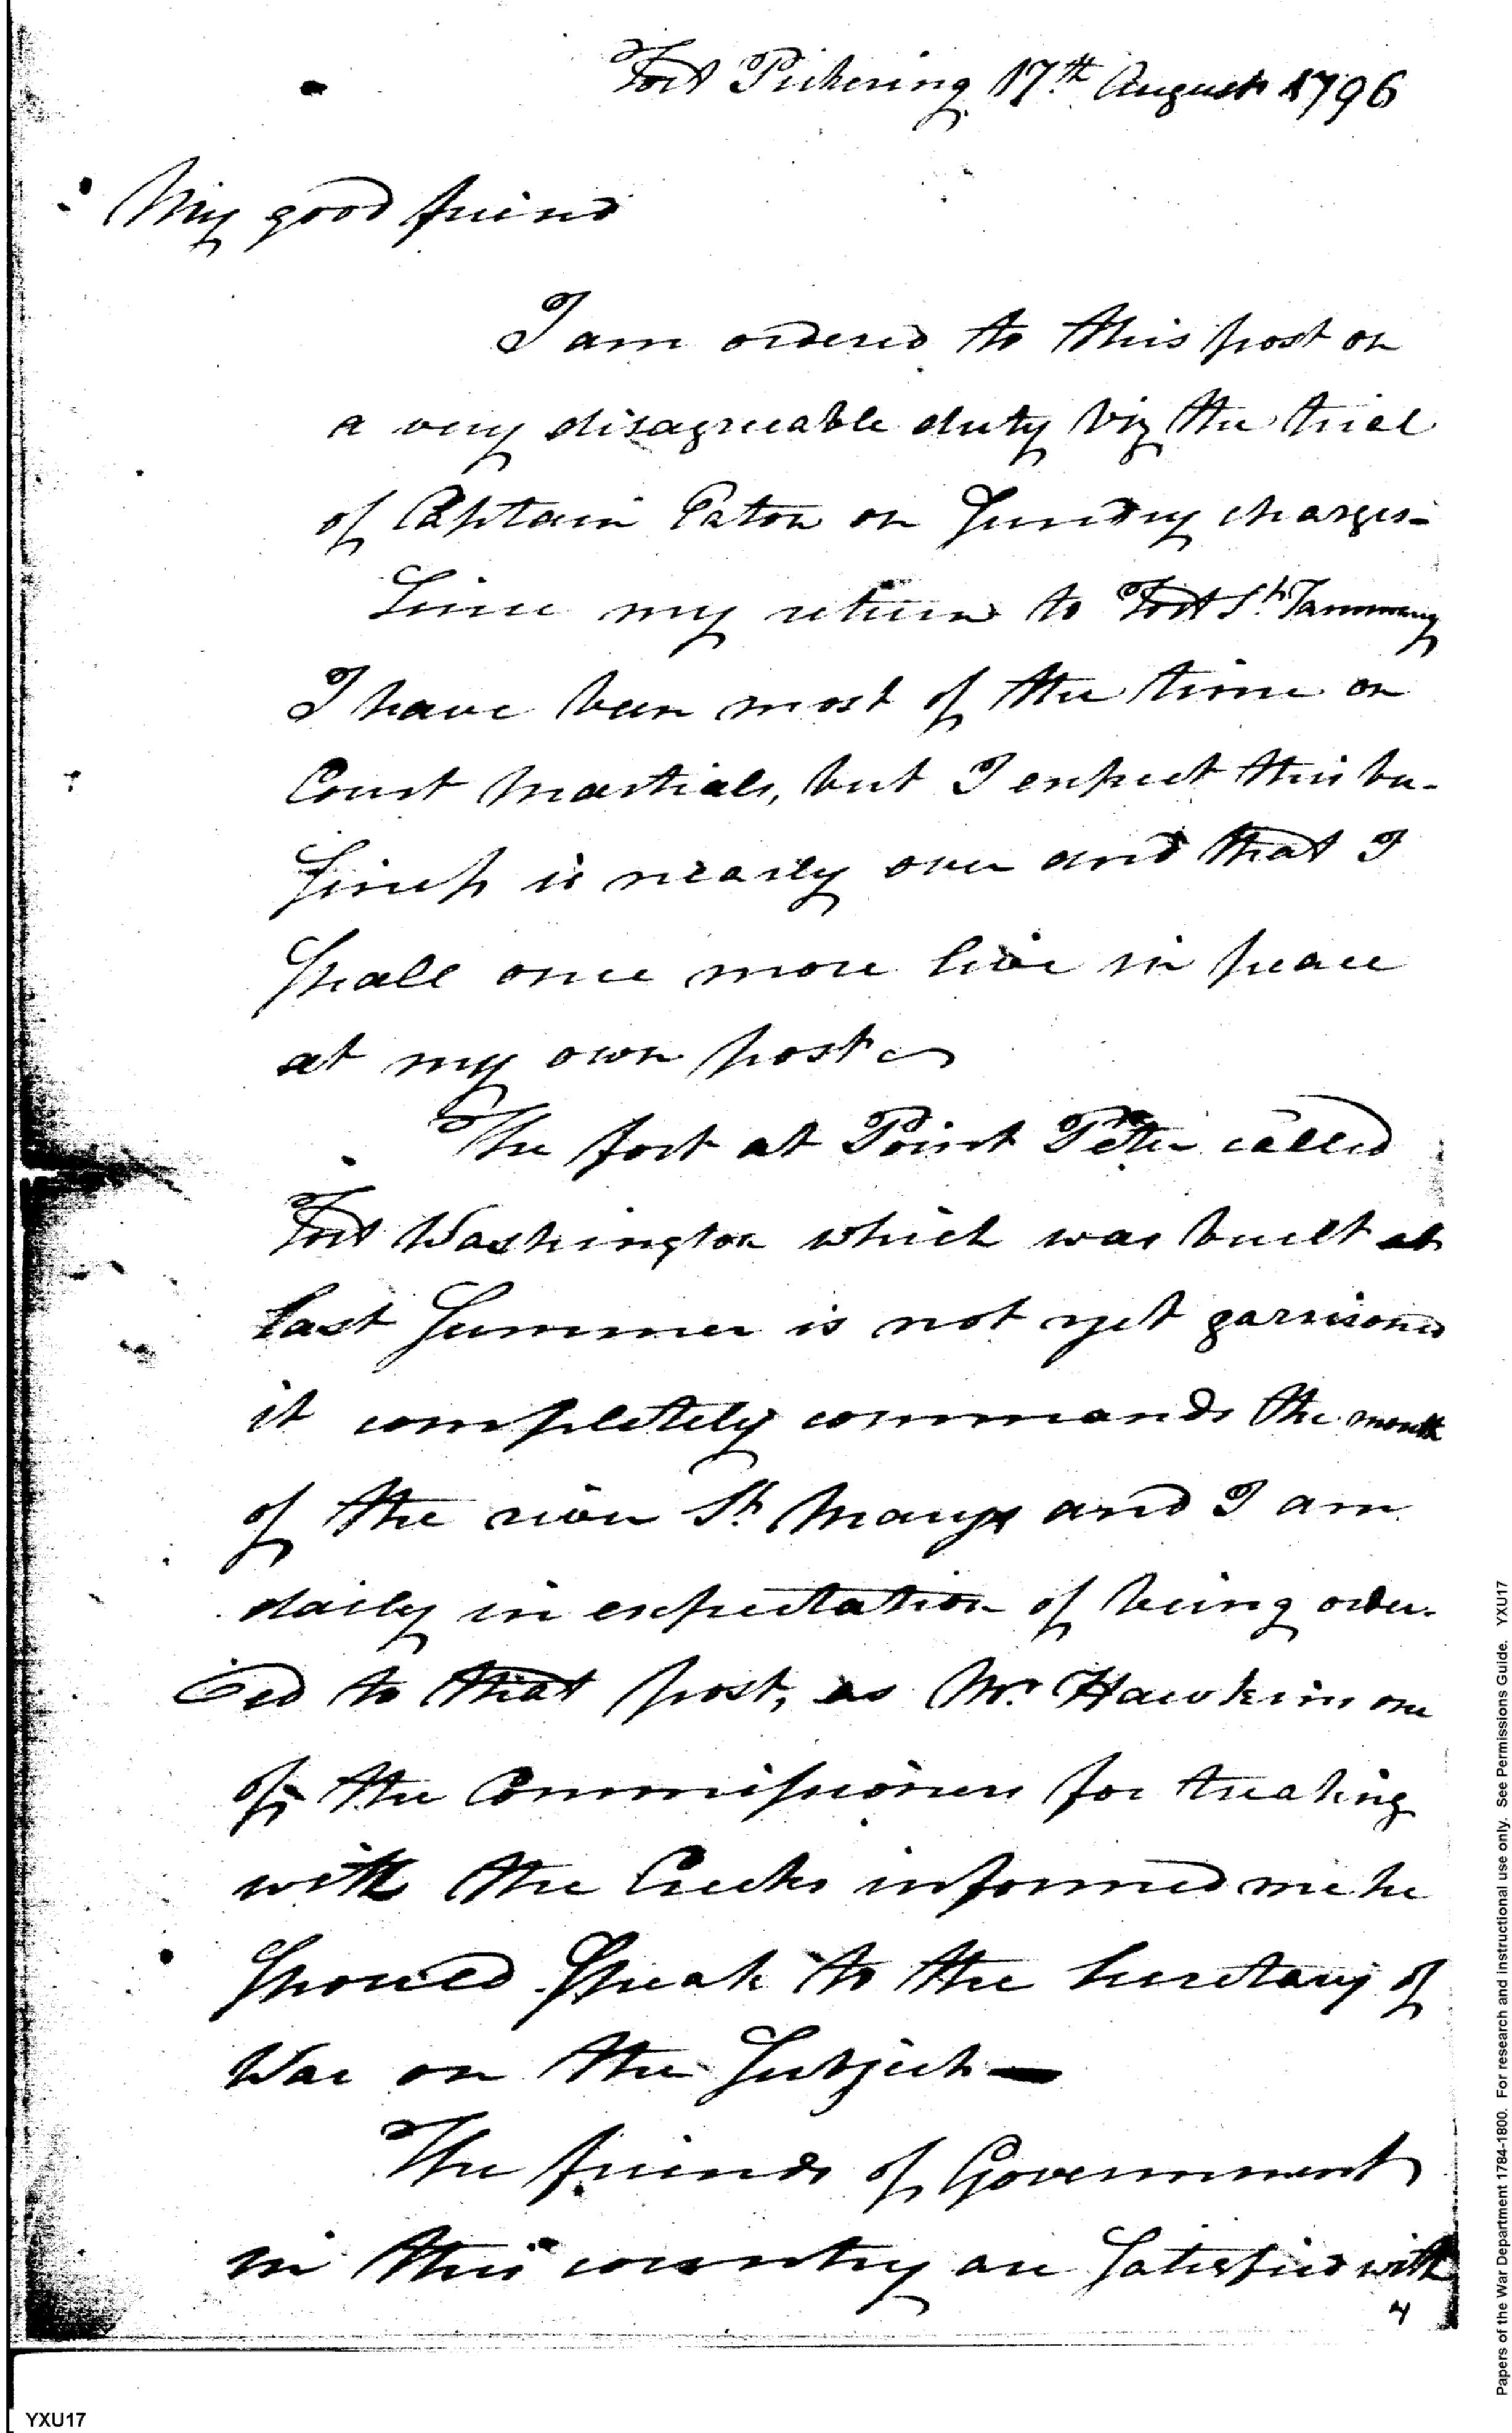 Fort Pickering 17th August 1796
My good friend
I am ordered to this post on
a very disagreeable duty Viz the trial
of Captain Eaton on Sundry charges-
Since my return to Fort St. Tammany
I have been most of the time on
Court Martials, but I expect this bu-
siness is nearly over and that I
shall once more live in peace
at my own post
The fort at Point Peter called
Fort Washington which was built
last Summer is not yet garrisoned
it completely commands the mouth
of the river St. Marys and I am
daily in expectation of being order-
ed to that post, as Mr. Hawkins one
of the Commissioners for treating
with the Creeks informed me he
should Speak to the Secretary of
War on the Subject—
The friends of Government
in this country are Satisfied with
4
YXU17
Papers of the War Department 1784-1800. For research and instructional use only. See Permissions Guide. YXU17